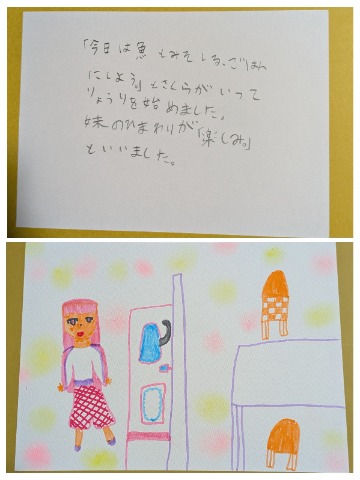 「今日は魚とみそしる、ごはん
にしよう。」とさくらがいって
りょうりを始めました。
妹のひまわりが「楽しみ。」
といいました。